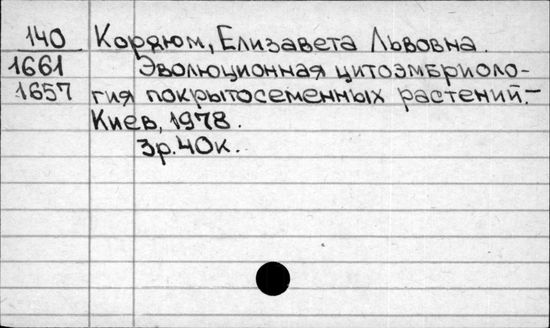 140 Кордюм, Елизавета Львовна.
1661 Эволюционная цитоэмбриоло-
1657 гия покрытосеменных растений.-
Киев, 1978.
3р.40к.